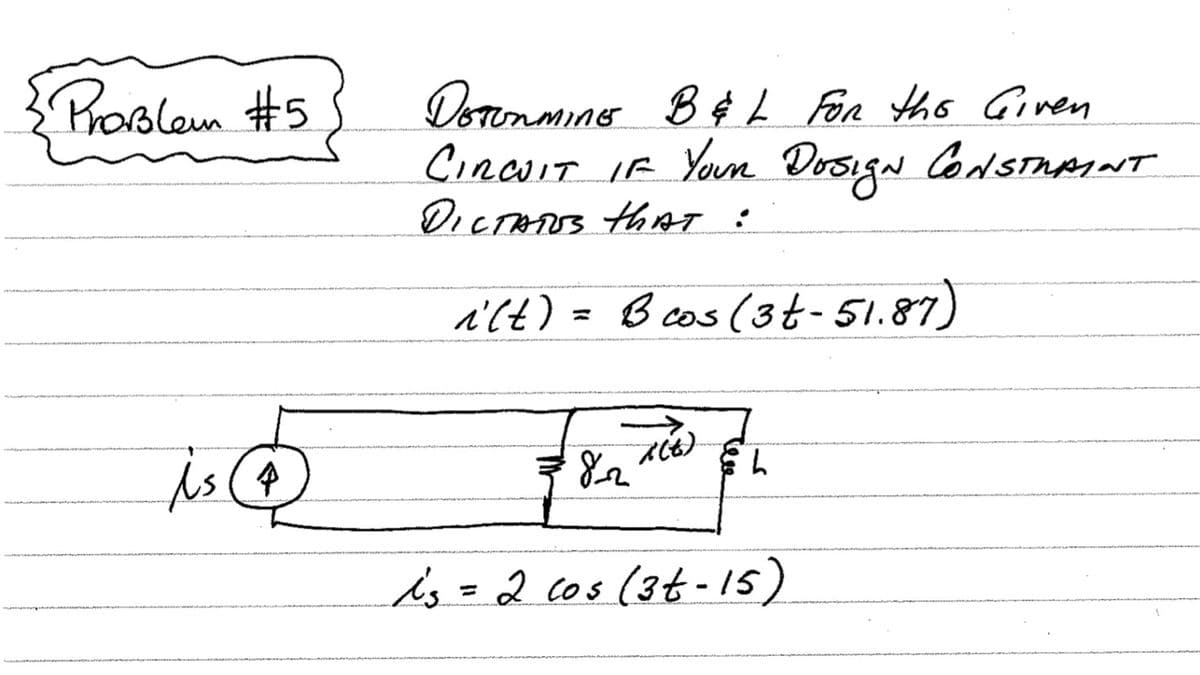 Problem #5
Determine B & L For the Given
Circuit if Your Design Constraint
Dictates that :
i(t) = B cos (3t - 51.87)
is
8Ω
i(t)
L
is = 2 cos (3t - 15)